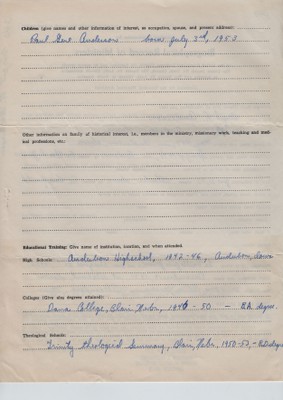 Children (give names and other information of interest, as occupation, spouse, and present address):
Paul Gene Anderson born July 2nd, 1953
Other information on family of historical interest, i.e., members in the ministry, missionary work, teaching and med-
ical professions, etc:
Educational Training: Give name of institution, location, and when attended.
High Schools: Highschool, 1942-46, Iowa
Colleges: (Give also degrees attained):
Dana College, Blair, Nebr., 1946 - 50 - B.A. degree.
Theological Schools:
Trinity Theological Seminary, Blair, Nebr., 1950-53, -